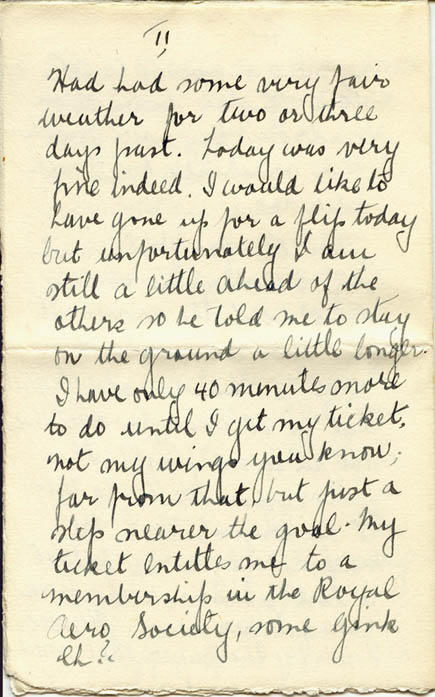 II
Had had some very fair
weather for two or three
days past. Today was very
fine indeed. I would like to
have gone up for a flip today
but unfortunately I am
still a little ahead of the
others so he told me to stay
on the ground a little longer.
I have only 40 minutes more
to do until I get my ticket,
not my wings you know,
far from that, but just a
step nearer the goal. My
ticket entitles me to a
membership in the Royal
Aero Society, some gink
eh?